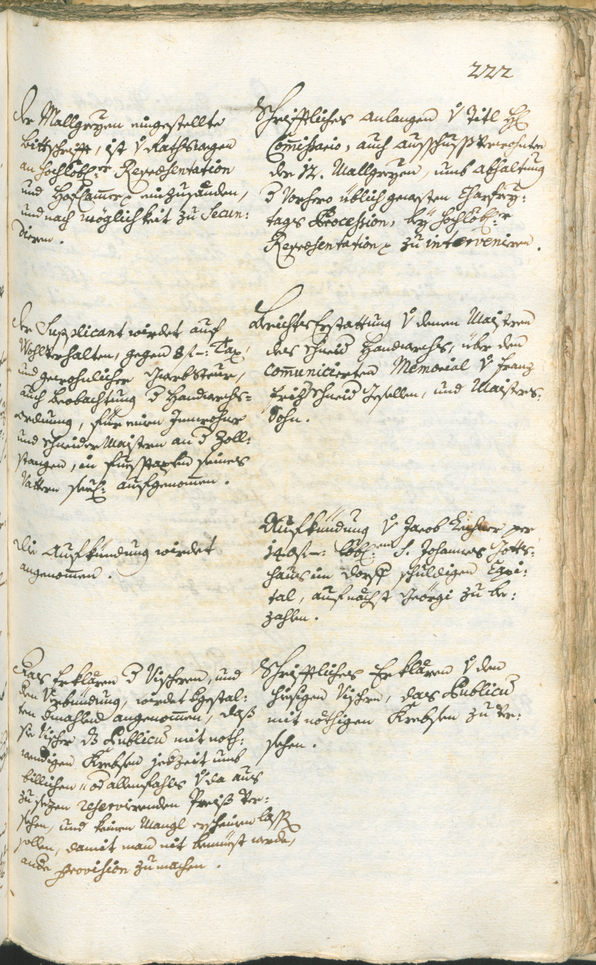 222
Der Mallgreyen eingestellte
bittschrifft, ist V Rathswegen
an hochlöb:r Repræsentation
und Hofkammer einzusenden,
und nach möglichkeit zu Secun-
diren.
Schrifftliches anlangen V Titl H:
Comissario, auch ausschuß Verordneten
der 12. Mallgreyen, umb abhaltung
d Vorhero üblich gewesten Charfrey-
tags Procession, bey hochlöb:r
Repræsentation zu interveniren.
Der Supplicant wirdet auf
Wohlverhalten, gegen 8 f: Tax,
und gewohnlicher
auch beobachtung d Handwerchs-
ordnung, für einen Innwohner
und Schneider Maistern an d Zoll-
stangen, in Fuesstapfen seines
Vattern seel: aufgenommen.
Berichts Erstattung V denen Maistern
des Schneid Handwerchs, über den
comunicierten Memorial V Franz
Schneid Gesellen, und Maisters-
Sohn.
Die Aufkündung wirdet
angenommen.
Aufkündung V Jacob per
S. Johannes Gotts-
haus im Dorff schuldigen Capi-
tal, auf nächst Georgi zu be-
zahlen.
Das Erklären d Vischern, und
den Verbündung, wirdet
angenommen, daß
die Vischer dz Publicu mit noth-
wendigen Krebsen jederzeit umb
billichen od allenfahls V da aus
zu sezen reservirenden Preiß ver-
sehen, und keinen Mangl erscheinen lassen
sollen, damit man nit bemüest werde,
ande provision zu machen.
Schrifftliches Erklären V den
hiesigen Vischern, das Publicu
mit nöthigen Krebsen zu ver-
sehen.